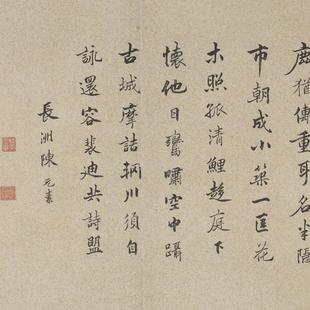 鹿猶傳重耳名半隱
市朝成小築一匡花
木照孤清鯉趨庭下
懷他日鸞嘯空中躡
古城摩詰輞川須自
詠還容裴迪共詩盟
長洲陳元素